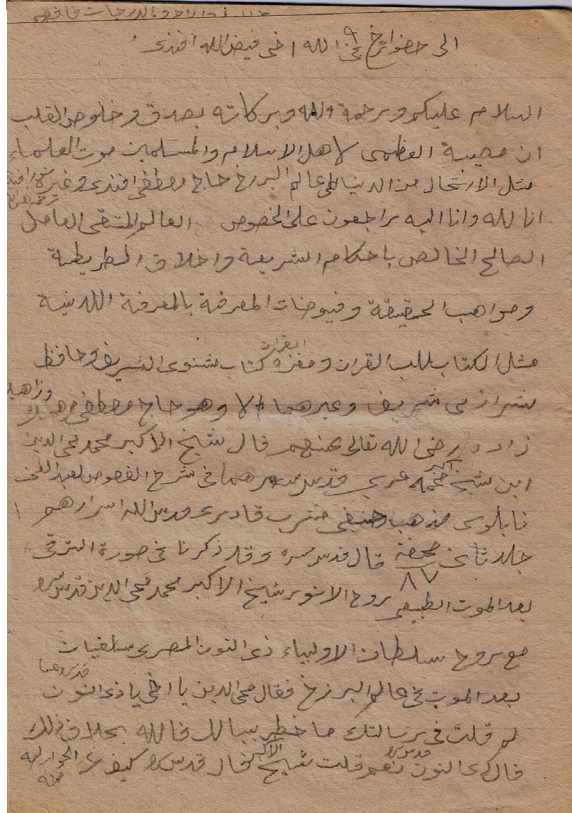 الى حضر الله اخى فيض الله افندى
السلام عليكم ورحمة الله وبركاته بصدق وخلوص القلب
ان مصيبة العظمى لاهل الاسلام والمسلمين موت العلماء
مثل الارتحال من الدنيا الى عالم البرزخ حاج مصطفى افندى وغيره
انا لله وانا اليه راجعون على الخصوص العالم المتقى العامل
الصالح الخالص باحكام الشريعة واخلاق الطريقة
ومواهب الحقيقة وفيوضات المعرفة بالمعرفة اللدنية
مثل الكتاب للب القران و القران كتاب مثنوى الشريف وحافظ
شيرازى شريف وغيرهما الا وهو حاج مصطفى
زاده رضى الله تعالى عنهم قال شيخ الاكبر محمد محى الدين
ابن شيخ اكبر عربى قدس سرهما فى شرح الفصوص لعبد الغنى
نابلوسى مذهب حنفى مشرب قادرى قدس الله اسرارهم
جلد ثانى صحفة ٨٧ قال قدس سره وقد ذكرنا فى صورة الترقى
بعد الموت الطبيعى بروح الانور شيخ الاكبر محمد محى الدين قدس سره
مع روح سلطان الاولياء ذى النون المصرى
بعد الموت فى عالم البرزخ فقال محى الدين يا اخى يا ذى النون قدس سرهما
لم قلت فى رسالتك ما خطر ببالك فالله بخلاف ذلك
قال ذى النون قدس سره نعم قلت شيخ الاكبر فقال قدس سره كيف